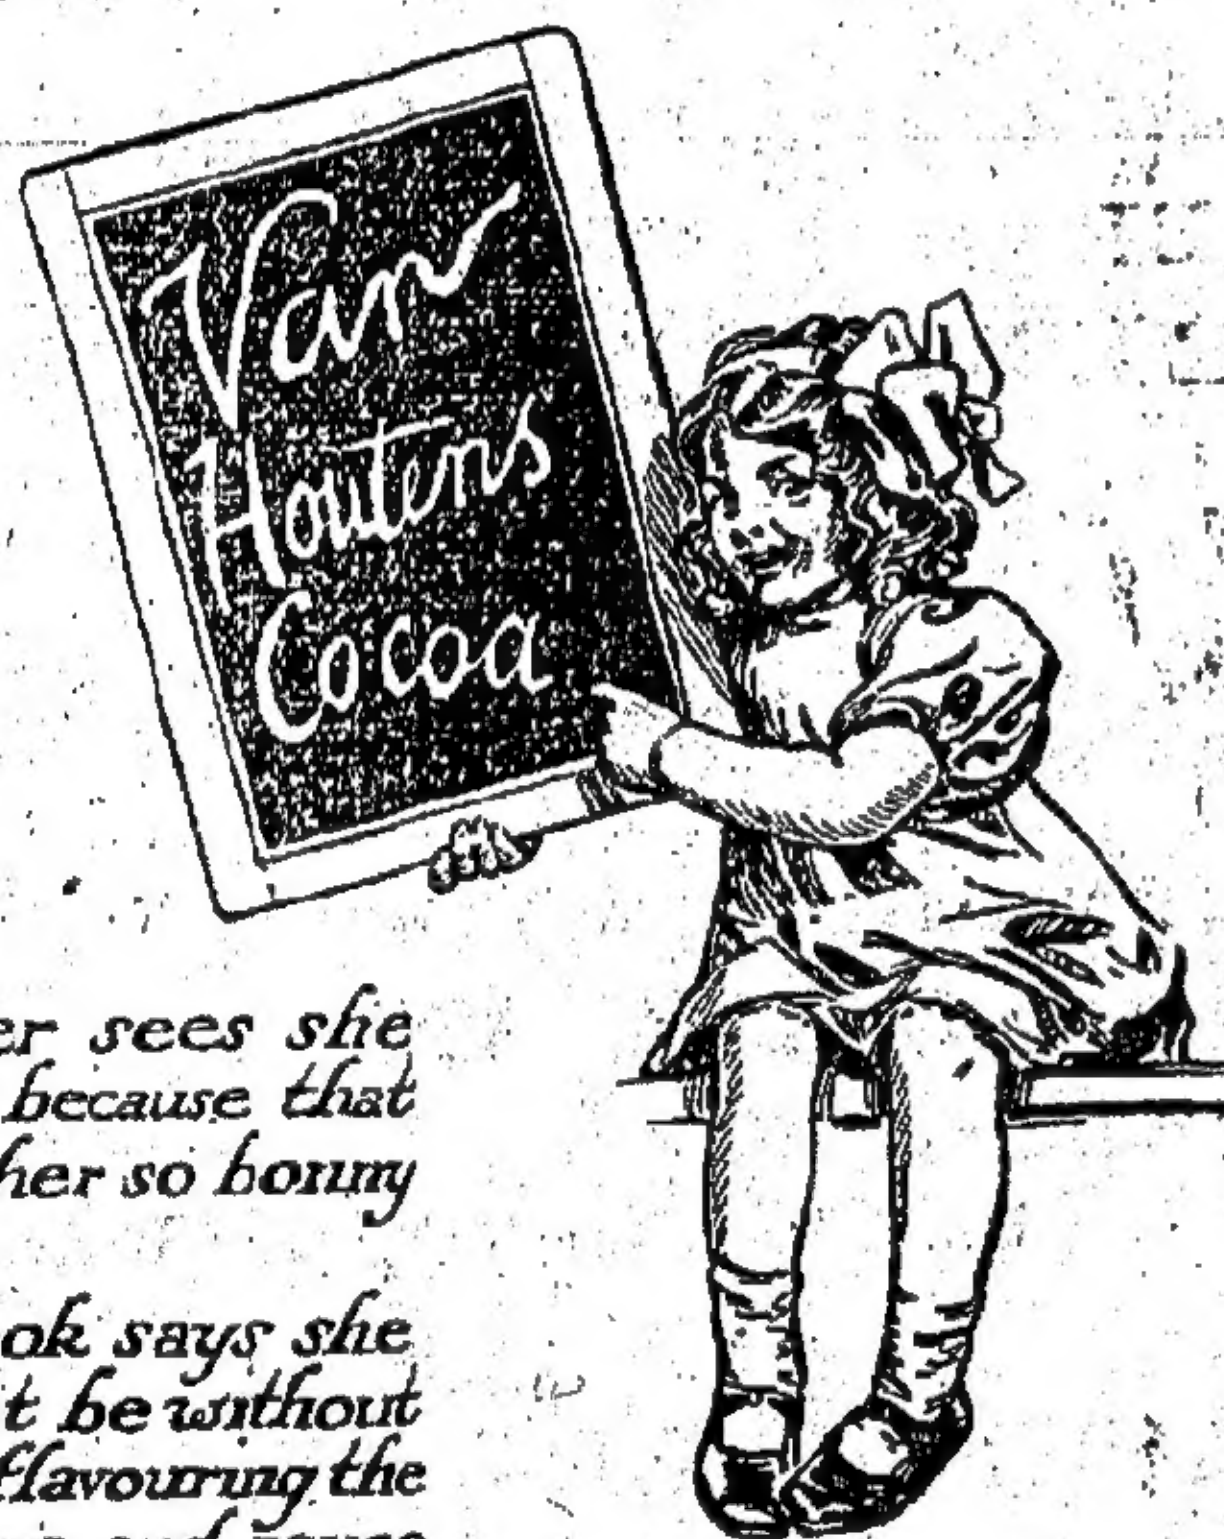 Van
Houtens
Cocoa
er sees she
because that
her so bonny
ok says she
t be without
flavouring the